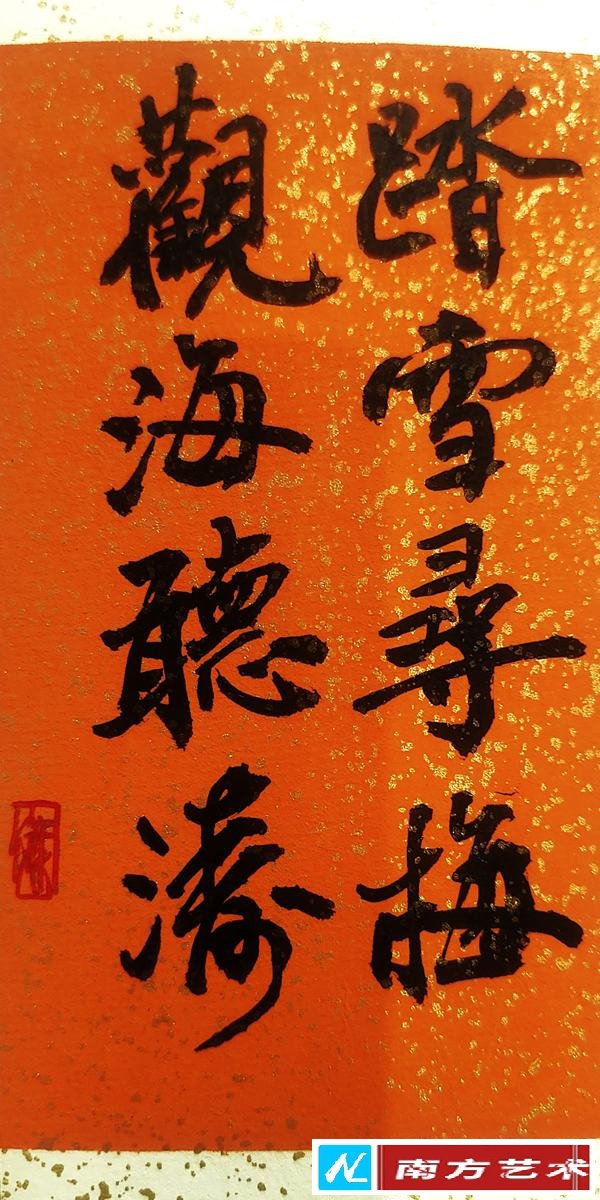 踏雪尋梅
觀海聽濤
南方艺术